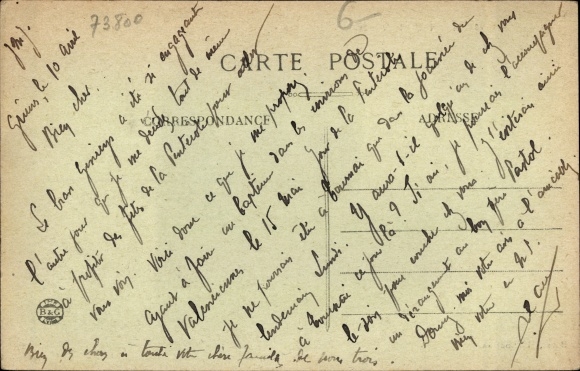 73800
6-
CARTE POSTALE
CORRESPONDANCE
ADRESSE
Jmj.
le 10 avril
Bien cher
Le bon a été si engageant
l'autre jour que je me décide tout de même
à profiter des fêtes de la Pentecôte pour aller
vous voir. Voici donc ce que je me propose
Ayant à faire un baptême dans les environs de
Valenciennes le 15 Mai jour de la Pentecôte
je ne pourrais être à Tournai que dans la journée du
lendemain Lundi. Y aura-t-il quelqu'un de chez vous
à ce jour là ? Si oui, je pourrais l'accompagner
le soir pour coucher chez vous. J'éviterais ainsi
un dérangement au bon père Pastol.
Donnez moi votre avis à l'
Bien votre en N.S.
B&G
Bien des choses à toute votre chère famille de nous trois.